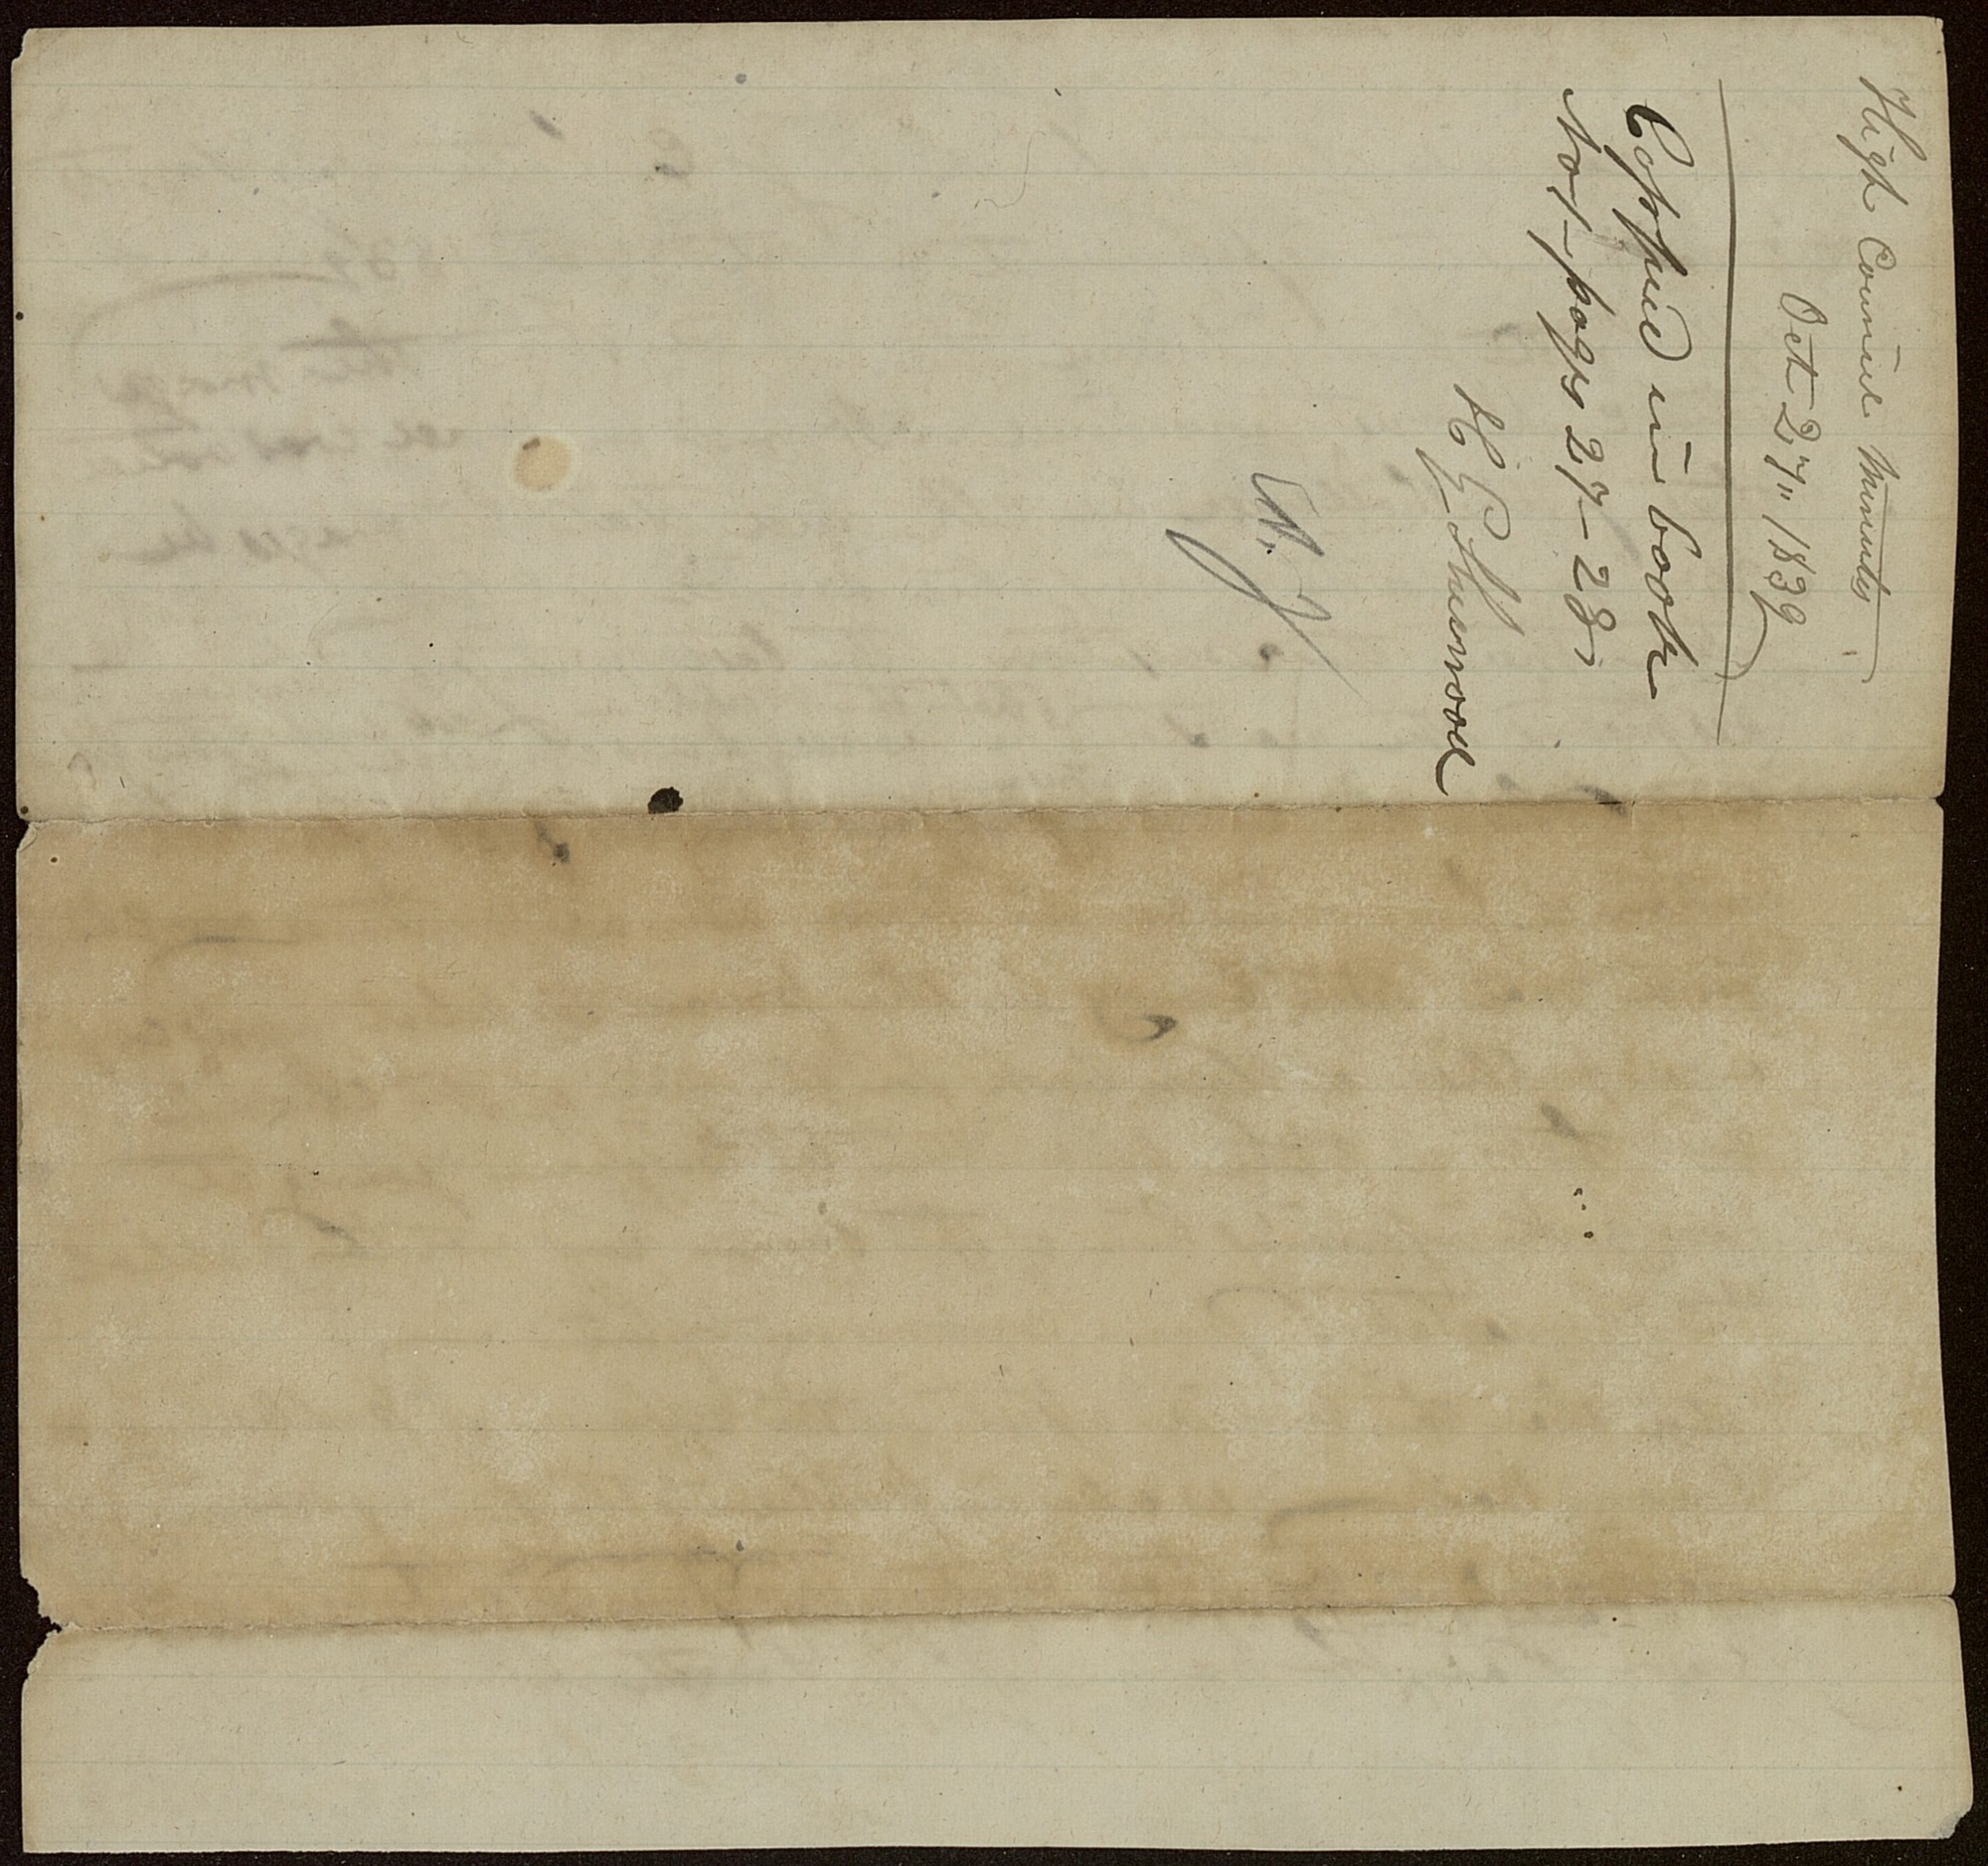 High Council Minutes
Oct 27" 1839
Coppied in book
No 1– pages 27– 28,
H G Sherwood
N. J